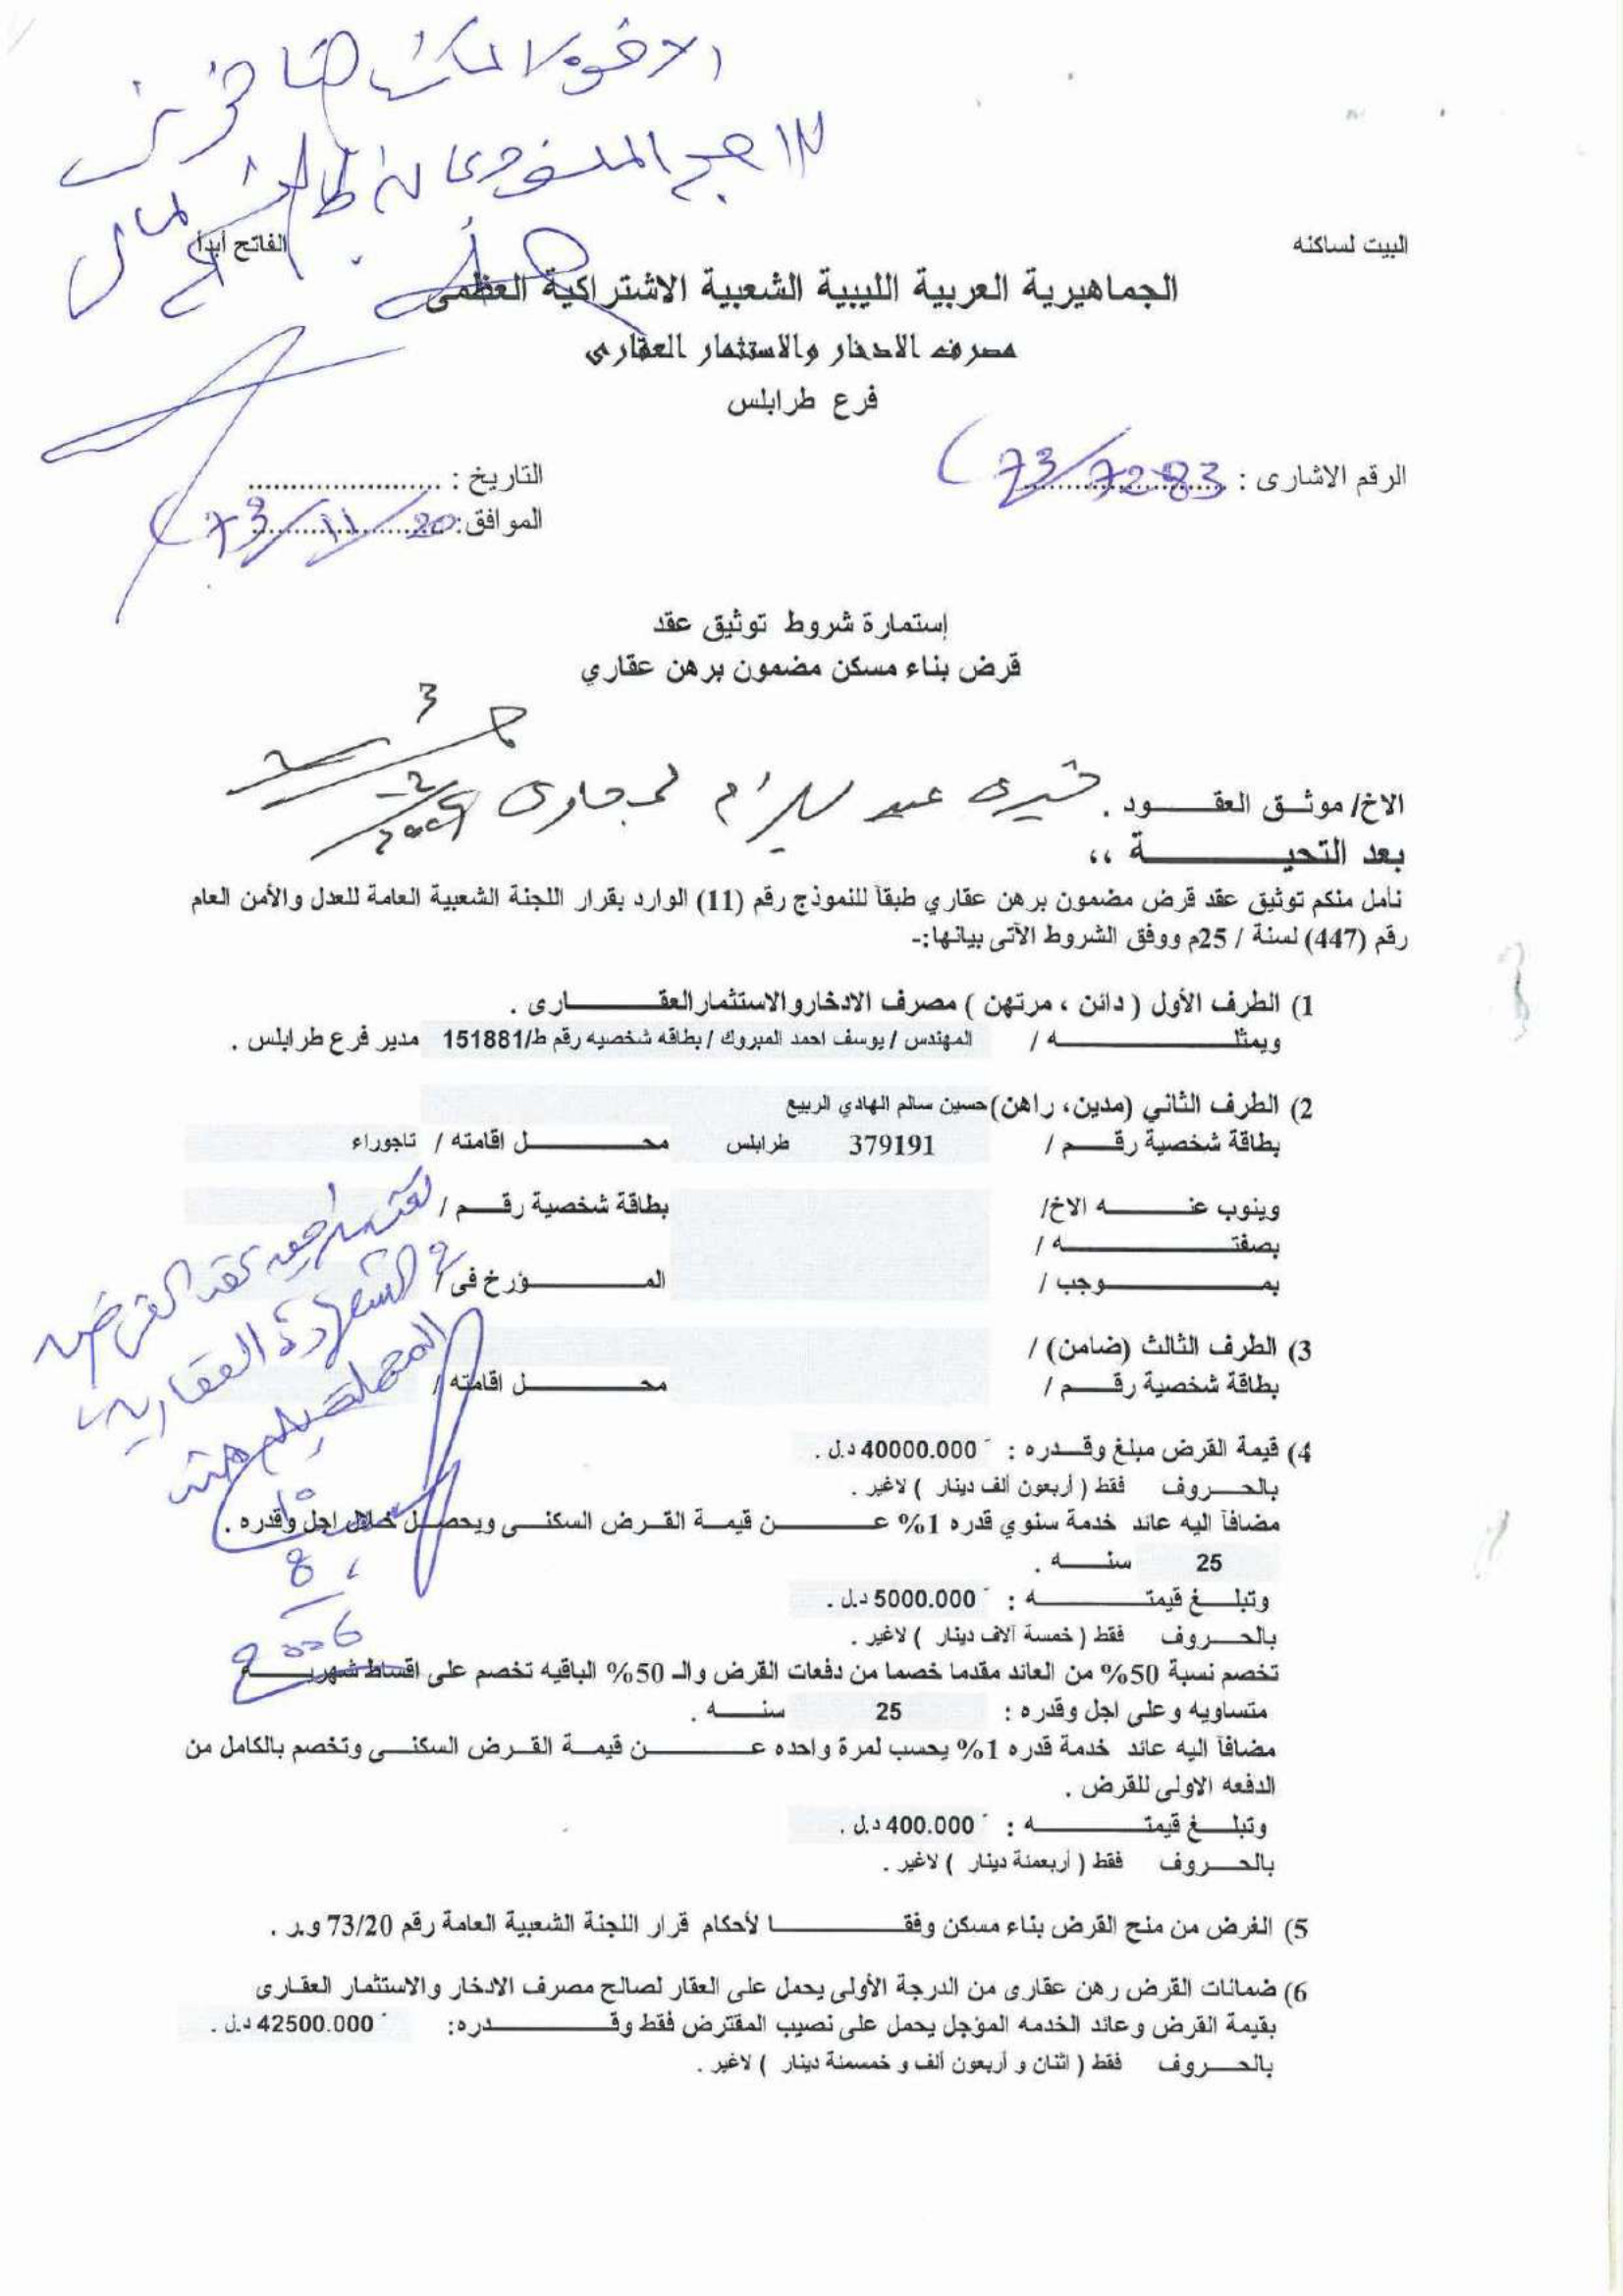 البيت لساكنه
الفاتح أبدا
الجماهيرية العربية الليبية الشعبية الاشتراكية العظمى
مصرف الادخار والاستثمار العقارى
فرع طرابلس
الرقم الاشارى : 73/7283
التاريخ : ......................
الموافق: 73/11/20
إستمارة شروط توثيق عقد
قرض بناء مسكن مضمون برهن عقاري
الاخ/ موثق العقود .
بعد التحية ،،
نامل منكم توثيق عقد قرض مضمون برهن عقاري طبقاً للنموذج رقم (11) الوارد بقرار اللجنة الشعبية العامة للعدل والأمن العام
رقم (447) لسنة / 25م ووفق الشروط الآتى بيانها:-
1) الطرف الأول ( دائن ، مرتهن ) مصرف الادخار والاستثمار العقارى .
ويمثله / المهندس / يوسف احمد المبروك / بطاقه شخصيه رقم ط/151881 مدير فرع طرابلس .
2) الطرف الثاني (مدين، راهن) حسين سالم الهادي الربيع
بطاقة شخصية رقم / 379191 طرابلس محل اقامته / تاجوراء
وينوب عنه الاخ/ بطاقة شخصية رقم /
بصفته /
بموجب / المؤرخ فى /
3) الطرف الثالث (ضامن) /
بطاقة شخصية رقم / محل اقامته /
4) قيمة القرض مبلغ وقدره : 40000.000 د.ل .
بالحروف فقط ( أربعون ألف دينار ) لاغير .
مضافاً اليه عائد خدمة سنوي قدره 1% عن قيمة القرض السكنى ويحصل خلال اجل وقدره .
25 سنه .
وتبلغ قيمته : 5000.000 د.ل .
بالحروف فقط ( خمسة آلاف دينار ) لاغير .
تخصم نسبة 50% من العائد مقدما خصما من دفعات القرض والـ 50% الباقيه تخصم على اقساط شهريه
متساويه وعلى اجل وقدره : 25 سنه .
مضافاً اليه عائد خدمة قدره 1% يحسب لمرة واحده عن قيمة القرض السكنى وتخصم بالكامل من
الدفعه الاولى للقرض .
وتبلغ قيمته : 400.000 د.ل .
بالحروف فقط ( أربعمئة دينار ) لاغير .
5) الغرض من منح القرض بناء مسكن وفقا لأحكام قرار اللجنة الشعبية العامة رقم 73/20 و.ر .
6) ضمانات القرض رهن عقارى من الدرجة الأولى يحمل على العقار لصالح مصرف الادخار والاستثمار العقارى
بقيمة القرض وعائد الخدمه المؤجل يحمل على نصيب المقترض فقط وقدره: 42500.000 د.ل .
بالحروف فقط ( اثنان و أربعون ألف و خمسمئة دينار ) لاغير .